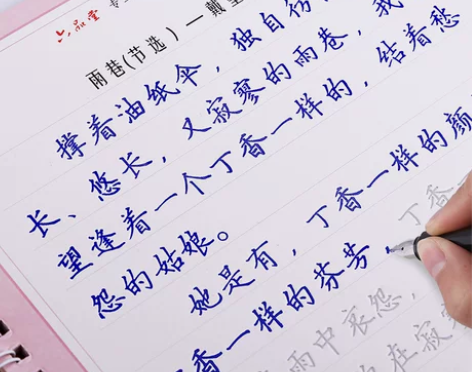 六品堂 专
雨巷(节选) — 戴望
撑着油纸伞，独自彷
长、悠长，又寂寥的雨巷，我
望逢着一个丁香一样的，结着愁
怨的姑娘。
她是有，丁香一样的颜
香一样的芬芳，丁香
雨中哀怨，
在寂寥